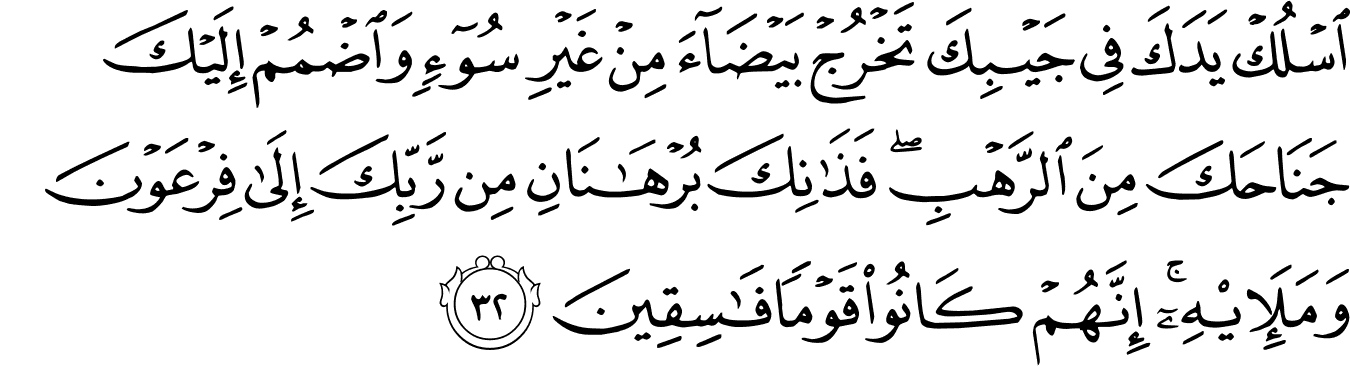 ٱسْلُكْ يَدَكَ فِى جَيْبِكَ تَخْرُجْ بَيْضَآءَ مِنْ غَيْرِ سُوٓءٍ وَٱضْمُمْ إِلَيْكَ
جَنَاحَكَ مِنَ ٱلرَّهْبِ ۖ فَذَٰنِكَ بُرْهَـٰنَانِ مِن رَّبِّكَ إِلَىٰ فِرْعَوْنَ
وَمَلَإِي۟هِۦٓ ۚ إِنَّهُمْ كَانُوا۟ قَوْمًا فَـٰسِقِينَ ٣٢